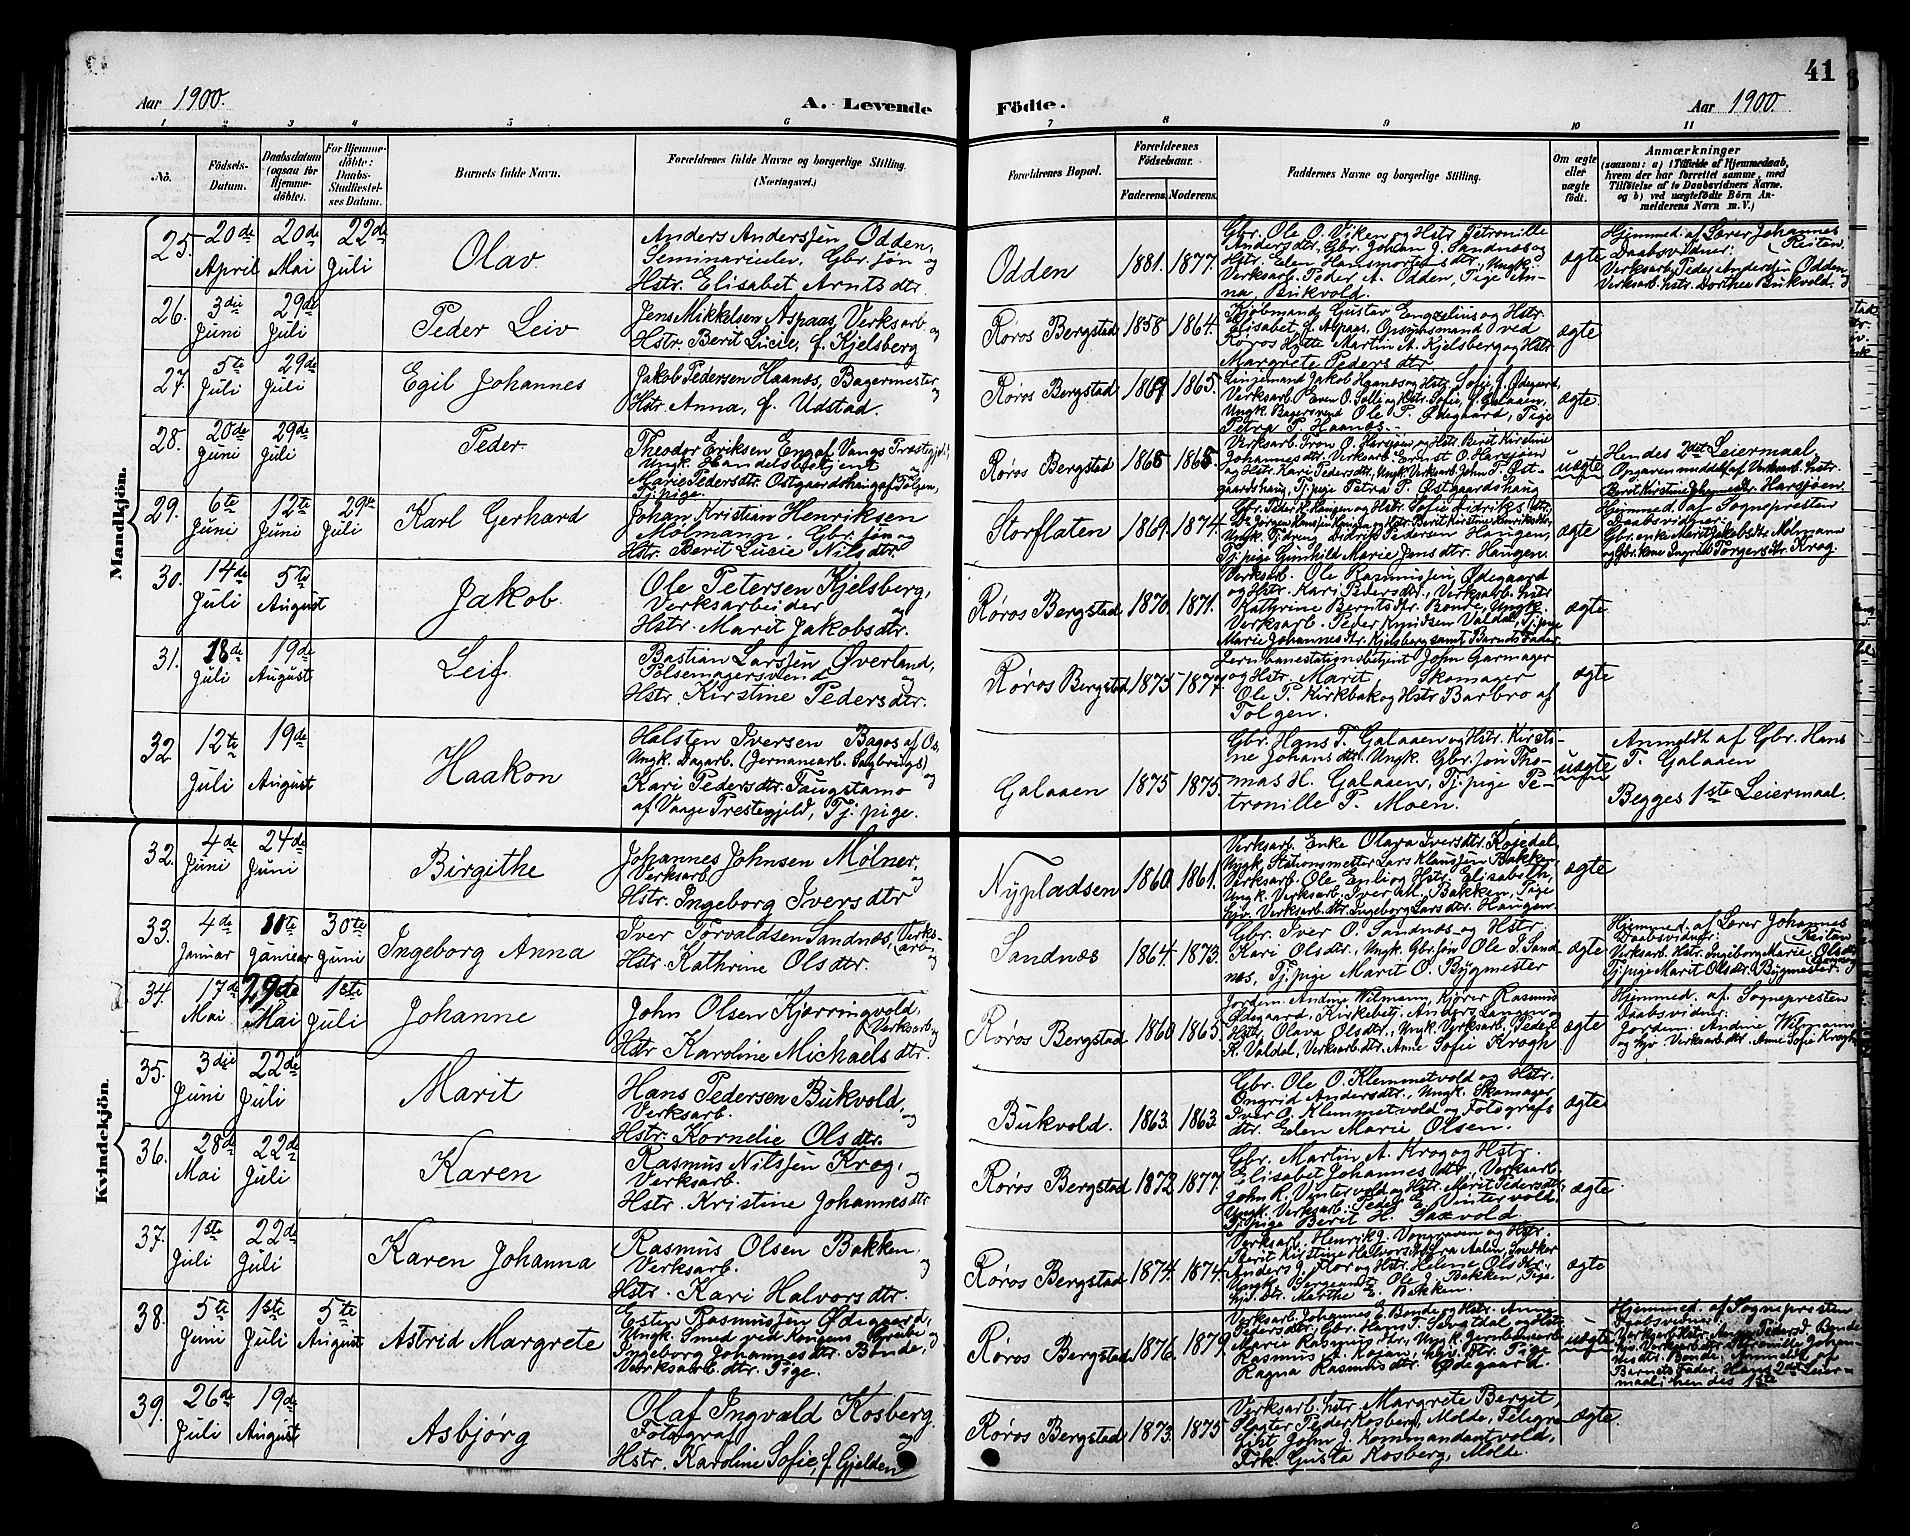 41
Aar 1900.
A. Levende Födte.
Aar 1900.
1 2 3 4 5 6 7 8 9 10 11
No.
Födsels-Datum.
Daabsdatum (ogsaa for Hjemmedöbte).
For Hjemmedöbte: Daabs-Stadfæstelses Datum.
Barnets fulde Navn.
Forældrenes fulde Navne og borgerlige Stilling. (Næringsvei.)
Forældrenes Bopæl.
Forældrenes Födselsaar.
Faderens. Moderens.
Faddernes Navne og borgerlige Stilling.
Om ægte eller uægte födt.
Anmærkninger
(saasom: a) i Tilfælde af Hjemmedaab, hvem der har forrettet samme, med Tilföielse af to Daabsvidners Navne. og b) ved uægtefödte Börn Anmelderens Navn m. V.)
Mandkjön.
25. 20de April 20de Mai 22de Juli
Olav
Anders Andersen Odden,
Seminarieelev, Gbr. søn og
Hstr. Elisabet Arntsdtr.
Odden 1881. 1877.
Gbr. Ole O. Viken og Hstr. Petronille
Andersdtr., Gbr. Johan J. Sandnæs og
Hstr. Elen Hansmortensdtr., Ungk.
Verksarb. Peder A. Odden, Pige An-
na Bukvold.
ægte
Hjemmed. af Lærer Johannes Reiten.
Daabsvidner:
Verksarb. Peder Andersen Odden og
Verksarb. hstr. Dorthea Bukvold.
26. 3die Juni 29de Juli
Peder Leiv
Jens Mikkelsen Aspaas, Verksarb. og
Hstr. Berit Lucie, f. Kjelsberg
Røros Bergstad 1858 1864.
Kjøbmand Gustav Engzelius og Hstr.
Elisabet f. Aspaas, Opsynsmand ved
Røros Hytte Martin A. Kjelsberg og Hstr.
Margrete Pedersdtr.
ægte
27. 5te Juli 29de Juli
Egil Johannes
Jakob Pedersen Haanæs, Bagermester og
Hstr. Anna, f. Udstad.
Røros Bergstad 1865.
Linjemand Jakob Haanæs og Hstr. Sofie f. Ødegaard,
Verksarb. Even O. Solli og Hstr. Sofie, f. Galaaen,
Ungk. Bagersvend Ole P. Ødegaard, Pige
Petra P. Haanæs.
ægte.
28. 20de Juni 29de Juli
Peder.
Theodor Eriksen Eng af Vangs Præstegjeld,
Ungk. Handelsbetjent og
Marie Pedersdtr. Østgaardshaug af Tolgen,
Tj. pige.
Røros Bergstad 1865 1865.
Verksarb. Tron O. Harsjøen og Hstr. Berit Kirstine
Johannesdtr. Verksarb. Ernst O. Harsjøen
og Hstr. Kari Pedersdtr., Ungk. Verksarb. John P. Øst-
gaardshaug, Tj. pige Petra P. Østgaardshaug
uægte
Hendes 2det Leiermaal,
Opgaven meddelt af Verksarb. hstr.
Berit Kirstine Johannesdtr. Harsjøen.
29. 6te Juni 12te Juni 29de Juli
Karl Gerhard
Johan Kristian Henriksen
Mølmann, Gbr. søn og
Hstr. Berit Lucie Nilsdtr.
Storflaten 1869. 1874.
Gbr. Peder K. Haugen og Hstr. Sofie Didriksdtr.
Gbr. Jørgen Hansen Haugen og Hstr. Berit Kirstine Henriksdtr.
Ungk. Tjdrng Didrik Pedersen Haugen,
Tj. pige Gunhild Marie Jensdtr. Haugen.
ægte
Hjemmed. af Sognepresten
Daabsvidner:
Gbr. enke Marit Jakobsdtr. Mølmann
og Gbr. kone Ingrid Torgersdtr. Krog.
30. 14de Juli 5te August
Jakob.
Ole Petersen Kjelsberg,
Verksarbeider og
Hstr. Marit Jakobsdtr.
Røros Bergstad 1870. 1871.
Verksarb. Ole Rasmussen Ødegaard
og Hstr. Kari Pedersdtr., Verksarb. hstr.
Kathrine Berntsdtr. Bonde, Ungk.
Verksarb. Peder Knudsen Valdal, Tj. pige
Marie Johannesdtr. Kjelsberg samt Barnets Fader.
ægte
31. 18de Juli 19de August
Leif
Bastian Larsen Øverland,
Pølsemagersvend og
Hstr. Kirstine Pedersdtr.
Røros Bergstad 1875 1877.
Jernbanestationsbetjent John Garmager
og Hstr. Marit, Skomager
Ole P. Kirkbak og Hstr. Barbro af
Tolgen.
ægte
32 12te Juli 19de August
Haakon
Halsten Iversen Bagos af Os,
Ungk. Dagarb. (Jernanearb. Sagbrugs) og
Kari Pedersdtr. Taugstamo
af Vaage Prestegjeld, Tj. pige.
Galaaen 1875 1875.
Gbr. Hans T. Galaaen og Hstr. Kirsti-
ne Johansdtr. Ungk. Gbr. søn Tho-
mas H. Galaaen, Tj. pige Pe-
tronille P. Moen.
uægte
Anmeldt af Gbr. Hans
T. Galaaen
Begges 1ste Leiermaal.
Kvindekjön.
32. 4de Juni 24de Juni
Birgithe
Johannes Johnsen Mølner,
Verksarb. og
Hstr. Ingeborg Iversdtr
Nypladsen 1860 1861.
Verksarb. Enke Olava Iversdtr. Kojedal,
Ungk. Stationsmester Lars Klausen Bakken,
Verksarb. Ole Enli og Hstr. Elisabeth,
Ungk. Verksarb. Iver Bakken, Pige
hjv. Verksarb. dtr. Ingeborg Larsdtr. Haugen.
ægte
33. 4de Januar 11te Januar 30te Juni
Ingeborg Anna
Iver Torvaldsen Sandnæs, Verksarb. og
Hstr. Kathrine Olsdtr.
Sandnæs 1864. 1873.
Gbr. Iver O. Sandnæs og Hstr.
Kari Olsdtr., Ungk. Gbr. søn Ole I. Sand-
næs, Tj. pige Marit O. Bygmester
ægte
Hjemmed. af Lærer Johannes Reiten
Daabsvidner:
Verksarb. Hstr. Ingeborg Marie Olsdtr.
Tj. pige Marit Olsdtr. Bygmester
34. 17de Mai 29de Mai 1ste Juli
Johanne
John Olsen Kjørringvold,
Verksarb. og
Hstr Karoline Michaelsdtr.
Røros Bergstad 1860 1865.
Jordem. Andine Wilmann, Kjører Rasmus
Ødegaard, Kirkebetj. Anders Langen og
Hstr. Olava Olsdtr., Ungk. Verksarb. Peder
K. Valdal, Verksarb. dtr. Anne Sofie Krogh
ægte
Hjemmed. af Sognepresten
Daabsvidner:
Jordem. Andine Wilmann
og hjv. Verksarb. dtr. Anne Sofie Krogh
35. 3die Juni 22de Juli
Marit
Hans Pedersen Bukvold,
Verksarb. og
Hstr. Kornelie Olsdtr.
Bukvold. 1863. 1863.
Gbr. Ole O. Klemmetvold og Hstr.
Ingrid Andersdtr., Ungk. Skomager
Iver O. Klemmetvold og Fotografs
dtr. Elen Marie Olsen.
ægte
36. 28de Mai 22de Juli
Karen
Rasmus Nilsen Krog,
Verksarb. og
Hstr. Kristine Johannesdtr
Røros Bergstad 1872 1877
Gbr. Martin A. Krog og Hstr.
Elisabet Johannesdtr., Verksarb.
John R. Vintervold og Hstr. Marit Pedersdtr.
Ungk. Verksarb. Peder E. Vintervold
Tj. pige Berit H. Saxvold.
ægte
37. 1ste Juli 22de Juli
Karen Johanna
Rasmus Olsen Bakken,
Verksarb. og
Hstr. Kari Halvorsdtr.
Røros Bergstad 1874. 1874.
Verksarb. Henrik J. Vongraven og Hstr.
Berit Kirstine Halvorsdtr. fra Aalen, Snedker
Anders J. Flor og Hstr. Helene Olsdtr.,
Ungk. Sergeant Ole J. Bakken, Pige
hjv. dtr. Marthe E. Bakken.
ægte
38. 5te Juni 1ste Juli 5te August
Astrid Margrete
Esten Rasmussen Ødegaard,
Ungk. Smed ved Kongens Grube og
Ingeborg Johannesdtr. Bonde,
Verksarb. dtr. Pige.
Røros Bergstad 1876. 1879.
Verksarb. Johannes J. Bonde og Hstr. Anne
Pedersdtr., Gbr. Hans T. Langtdal og Hstr.
Marie Rasmusdtr., Ungk. Jernbanearb.
Rasmus A. Kojan, hjv. dtr. Pige
Ragna Rasmusdtr. Ødegaard.
uægte
Hjemmed. af Sognepresten
Daabsvidner:
Verksarb. Hstr. Anne Pedersd. Bonde
hjv. Verksarb. dtr. Petronille Johan-
nesdtr. Bonde. Anmeldt af
Barnets Fader. Hans 2det Leier-
maal, hendes 1ste
39. 26de Juli 19de August
Asbjørg
Olaf Ingvald Kosberg,
Fotograf og
Hstr. Karoline Sofie, f. Gjelden
Røros Bergstad 1873. 1875
Verksarb. hstr. Margrete Berget,
Slagter Peder Kosberg, Molde, Telegra-
fist John J. Kommandantvold,
Frk. Gusta Kosberg, Molde.
ægte